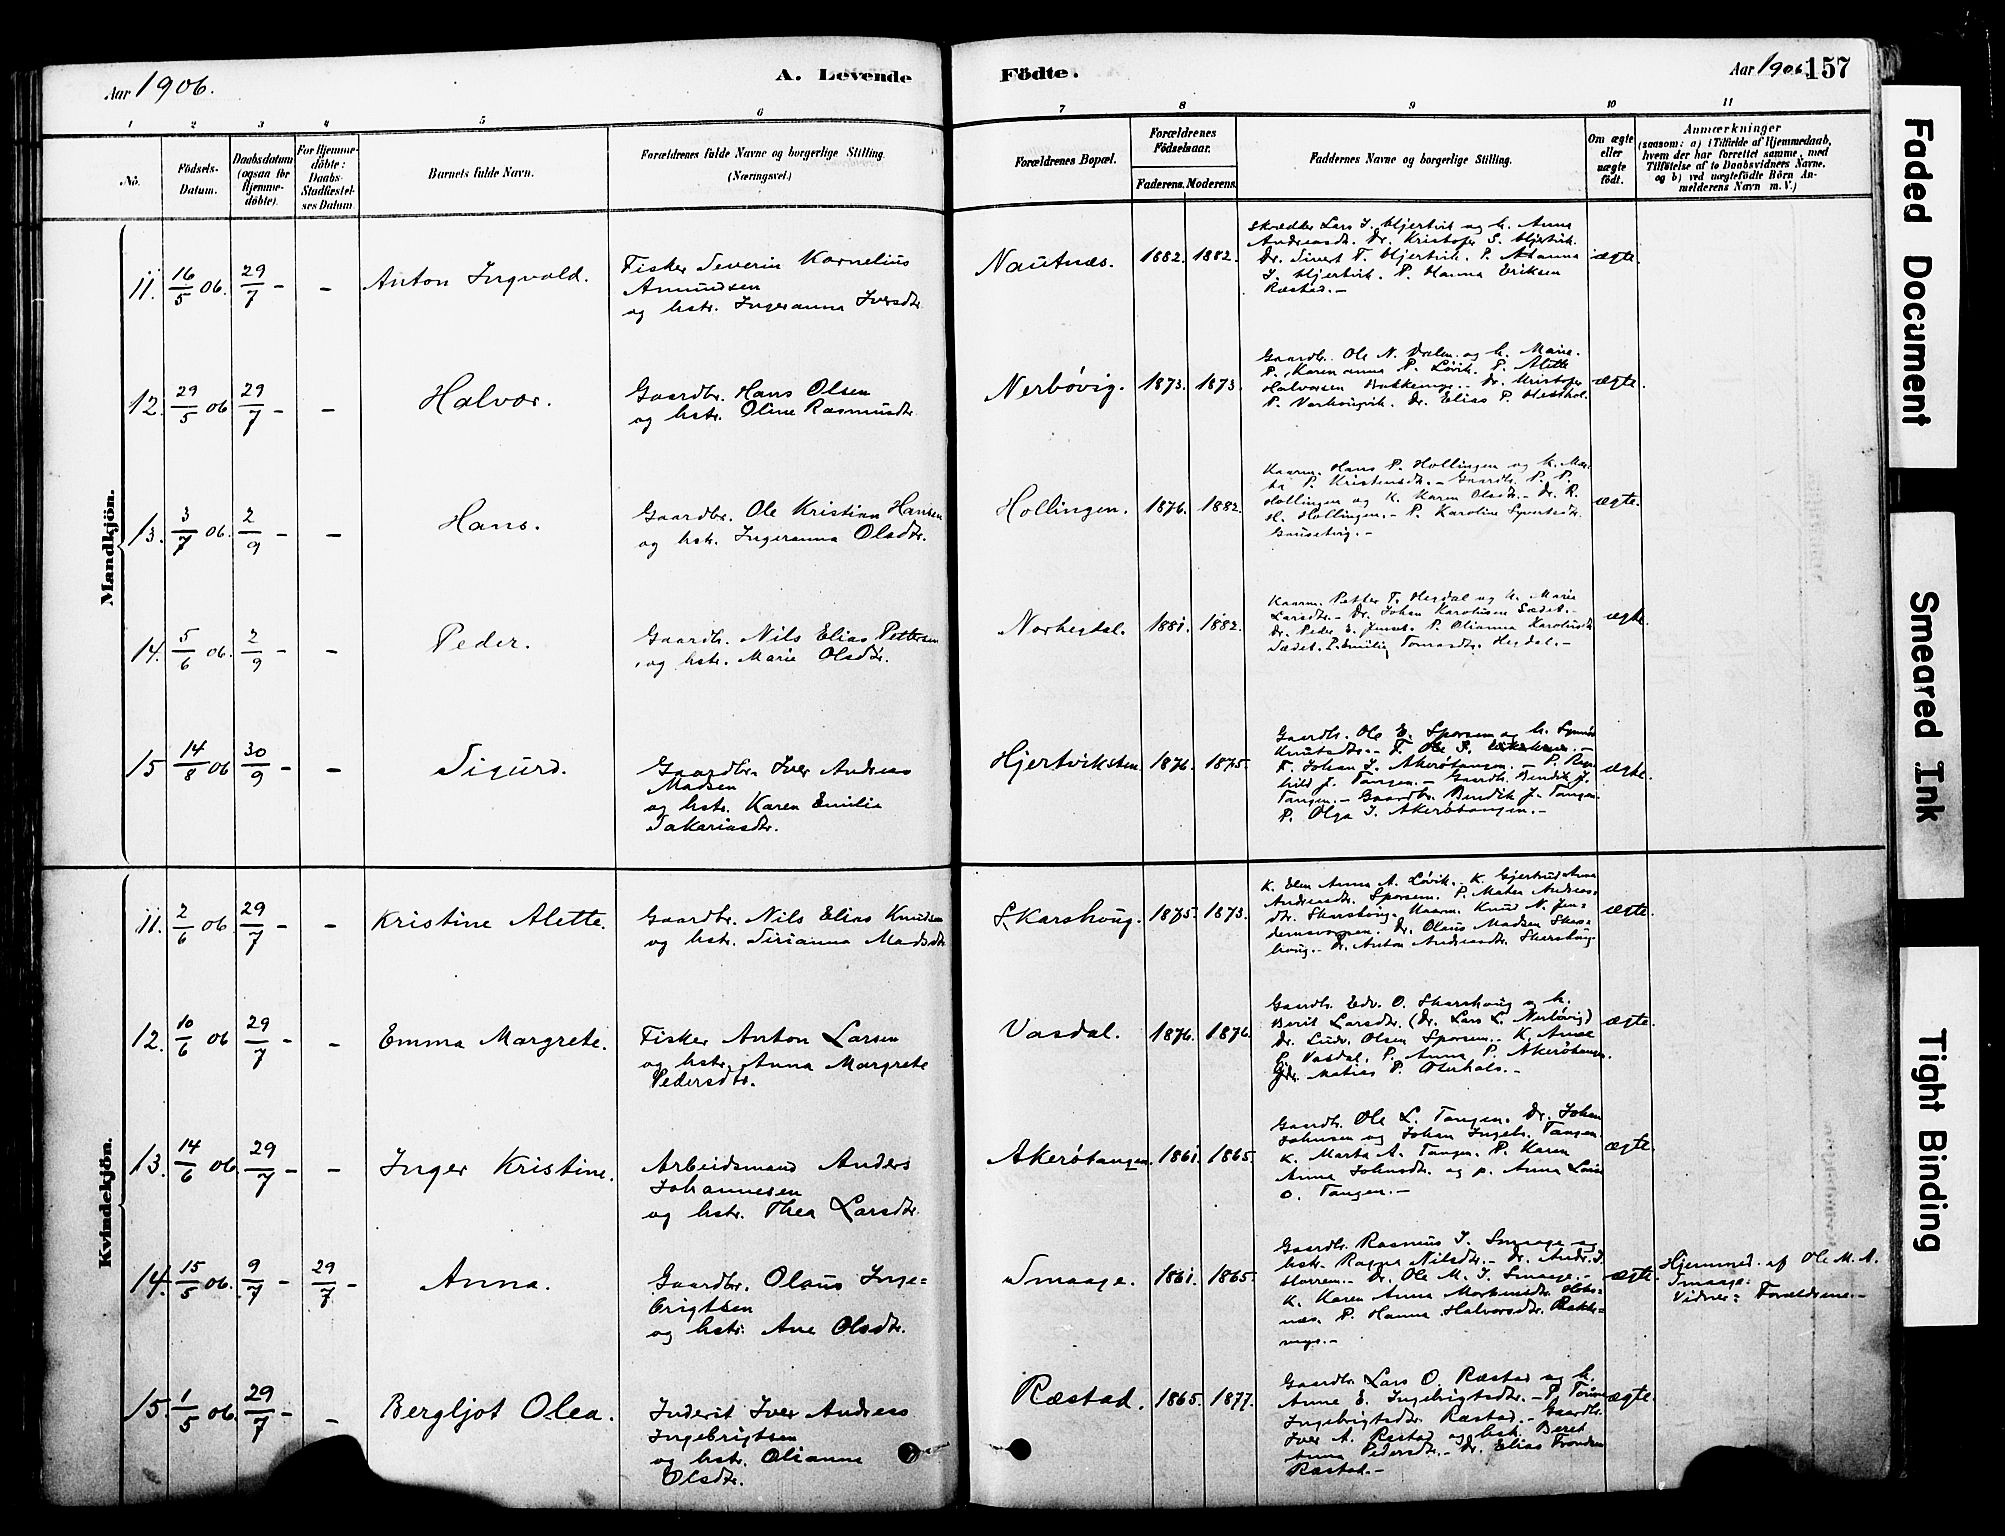 Aar 1906.
A. Levende
Födte.
Aar 1906.
157
1 2 3 4 5 6 7 8 9 10 11
No.
Födsels-
Datum.
Daabsdatum
(ogsaa for
Hjemme-
döbte).
For Hjemme-
döbte:
Daabs-
Stadfæstel-
ses Datum
Barnets fulde Navn.
Forældrenes fulde Navne og borgerlige Stilling
(Næringsvei.)
Forældrenes Bopæl.
Forældrenes
Födselsaar.
Faderens. Moderens.
Faddernes Navne og borgerlige Stilling.
Om ægte
eller
uægte
födt.
Anmærkninger
(saasom: a) i Tilfælde af Hjemmedaab,
hvem der har forrettet samme, med
Tilföielse af to Daabsvidners Navne,
og b) ved uægtefödte Börn An-
melderens Navn m. V.)
Mandkjön.
11. 16/5 06. 29/7 - - Anton Ingvald.
Fisker Severin Kornelius
Amundsen
og hstr. Ingeranna Iversdtr.
Nautnæs. 1882. 1882.
Skrædder Lars I. Hjertvik og k. Anne
Andreasdtr. Dr. Kristofer S. Hjertvik.
Dr. Sivert T. Hjertvik. P.
I. Hjertvik. P. Hanna Eriksen
Ræstad. -
ægte.
12. 29/5 06 29/7 - - Halvor.
Gaardbr. Hans Olsen
og hstr. Oline Rasmusdtr.
Nerbövig. 1873. 1873.
Gaardbr. Ole N. og k. Marie
P. Karenanna P. Lövik. P. Alette
Halvorsen Dr. Kristofer
P. Dr. Elias P.
ægte.
13. 3/7 06. 2/9 - - Hans.
Gaardbr. Ole Kristian Hansen
og hstr. Ingeranna Olsdtr.
Hollingen. 1876. 1882.
Kaarm. Hans P. Hollingen og k. Mar-
ta P. Kristensdtr. - Gaardbr. P. P.
Hollingen og K. Karen Olsdtr. - Dr. R.
H. Hollingen. - P. Karoline Syvertsdtr.
Gausetvig. -
ægte.
14. 5/6 06. 2/9 - - Peder.
Gaardb. Nils Elias Pettersen
og hstr. Marie Olsdtr.
Norhegdal. 1881. 1882.
Kaarm. Petter T. Hegdal og k. Marie
Larsdtr. - Dr. Johan Karolusen Sædet. -
Dr. Peder E. P. Olianna Karolusdtr.
Sædet. P. Emilie Tomasdtr. Hegdal. -
ægte.
15 14/8 06 30/9 - - Sigurd.
Gaardbr. Iver Andreas
Madsen
og hstr. Karen Emilie
Sakariasdtr.
Hjertviksten 1876. 1875.
Gaardbr. Ole E. Sporsem og k. Synnöve
Knutsdtr. - T. Ole S.
T. Johan I. Akerötangen. - P. Ragn-
hild J. Tangen. - Gaardb. Bendik J.
Tangen. - Gaardbr. Bendik J. Tangen
P. Olga I. Akerötangen. -
ægte.
Kvindekjön.
11. 2/6 06 29/7 - - Kristine Alette.
Gaardbr. Nils Elias Knudsen
og hstr. Sirianna Madsdtr.
Skarshoug. 1875. 1873.
K. Elen Anna A. Lövik. K. Gjertrud Anna
Andreasdtr. Sporsem. P. Mates Andreas-
dtr. Skarshoug. Kaarm. Knud N.
Dr. Olaus Madsen Skars-
houg. Dr. Anton Andreasdtr. Skarshoug
ægte.
12. 10/6 06 29/7 - - Emma Margrete.
Fisker Anton Larsen
og hstr. Anna Margrete
Pedersdtr.
Vasdal. 1876. 1876.
Gaardbr. Edv. O. Skarshoug og k.
Berit Larsdtr. (Dr. Lars L. Nerbövig)
Dr. Ludv. Olsen Sporsem. K. Anne
P. Vasdal. P. Anna P. Akerötangen.
Gdr. Matias P. Oterhals. -
ægte.
13. 14/6 06 29/7 - - Inger Kristine.
Arbeidsmand Anders
Johannesen
og hstr. Thea Larsdtr.
Akerötangen 1861. 1865.
Gaardb. Ole L. Tangen. Dr. Johan
Johnsen og Johan Ingebr. Tangen.
K. Marta A. Tangen. P. Karen
Anna Johnsdtr. og p. Anna Lovise
O. Tangen. -
ægte.
14. 15/5 06. 9/7 - 29/7 - Anna.
Gaardbr. Olaus Inge-
brigtsen
og hstr. Ane Olsdtr.
Smaage. 1861. 1865.
Gaardbr. Rasmus I. Smaage og
hstr. Ragna Nilsdtr. - Dr. Andr. I.
Horrem. - Dr. Ole M. I. Smaage. -
K. Karen Anna Mortensdtr. Hols-
næs. P. Hanna Halvorsdtr. Bakke-
myr. -
ægte.
Hjemmed. af Ole M. A.
Smaage.
Vidner: Forældrene. -
15. 1/5 06. 29/7 - - Bergljot Olea.
Inderst Iver Andreas
Ingebrigtsen
og hstr. Olianna
Olsdtr.
Ræstad. 1865. 1877.
Gaardbr. Lars O. Ræstad og k.
Anne E. Ingebrigtsdtr. - P. Torine
Ingebrigtsdtr. Ræstad. - Gaardbr.
Iver A. Ræstad og hstr. Beret
Anna Pedersdtr. - Dr. Elias Trondsen
Ræstad. -
ægte.
Faded Document
Smeared Ink
Tight Binding